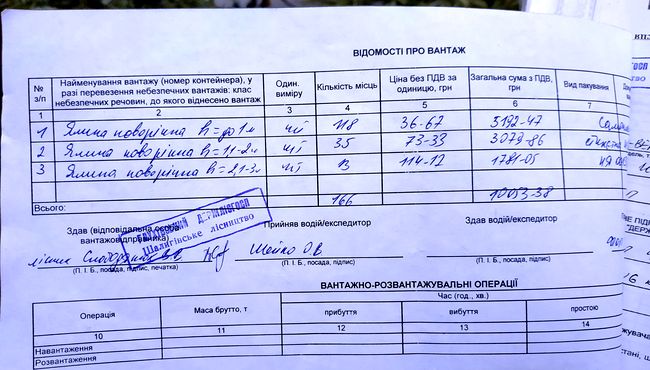 ВІДОМОСТІ ПРО ВАНТАЖ
№ з/п
Найменування вантажу (номер контейнера), у разі перевезення небезпечних вантажів: клас небезпечних речовин, до якого віднесено вантаж
Один. виміру
Кількість місць
Ціна без ПДВ за одиницю, грн
Загальна сума з ПДВ, грн
Вид пакування
1 2 3 4 5 6 7
1 Ялина новорічна h=до 1м шт 118 36-67 5192-47
2 Ялина новорічна h=1,1-2м шт 35 73-33 3079-86
3 Ялина новорічна h=2,1-3м шт 13 114-12 1781-05
Всього: 166 10053-38
Здав (відповідальна особа вантажовідправника)
Прийняв водій/експедитор
Здав водій/експедитор
ДЕРЖЛІСГОСП
Шалигівське лісництво
Шейко О.В.
(П. І. Б., посада, підпис, печатка)
(П. І. Б., посада, підпис)
(П. І. Б., посада, підпис)
ВАНТАЖНО-РОЗВАНТАЖУВАЛЬНІ ОПЕРАЦІЇ
Операція
Маса брутто, т
Час (год., хв.)
прибуття вибуття простою
10 11 12 13 14
Навантаження
Розвантаження